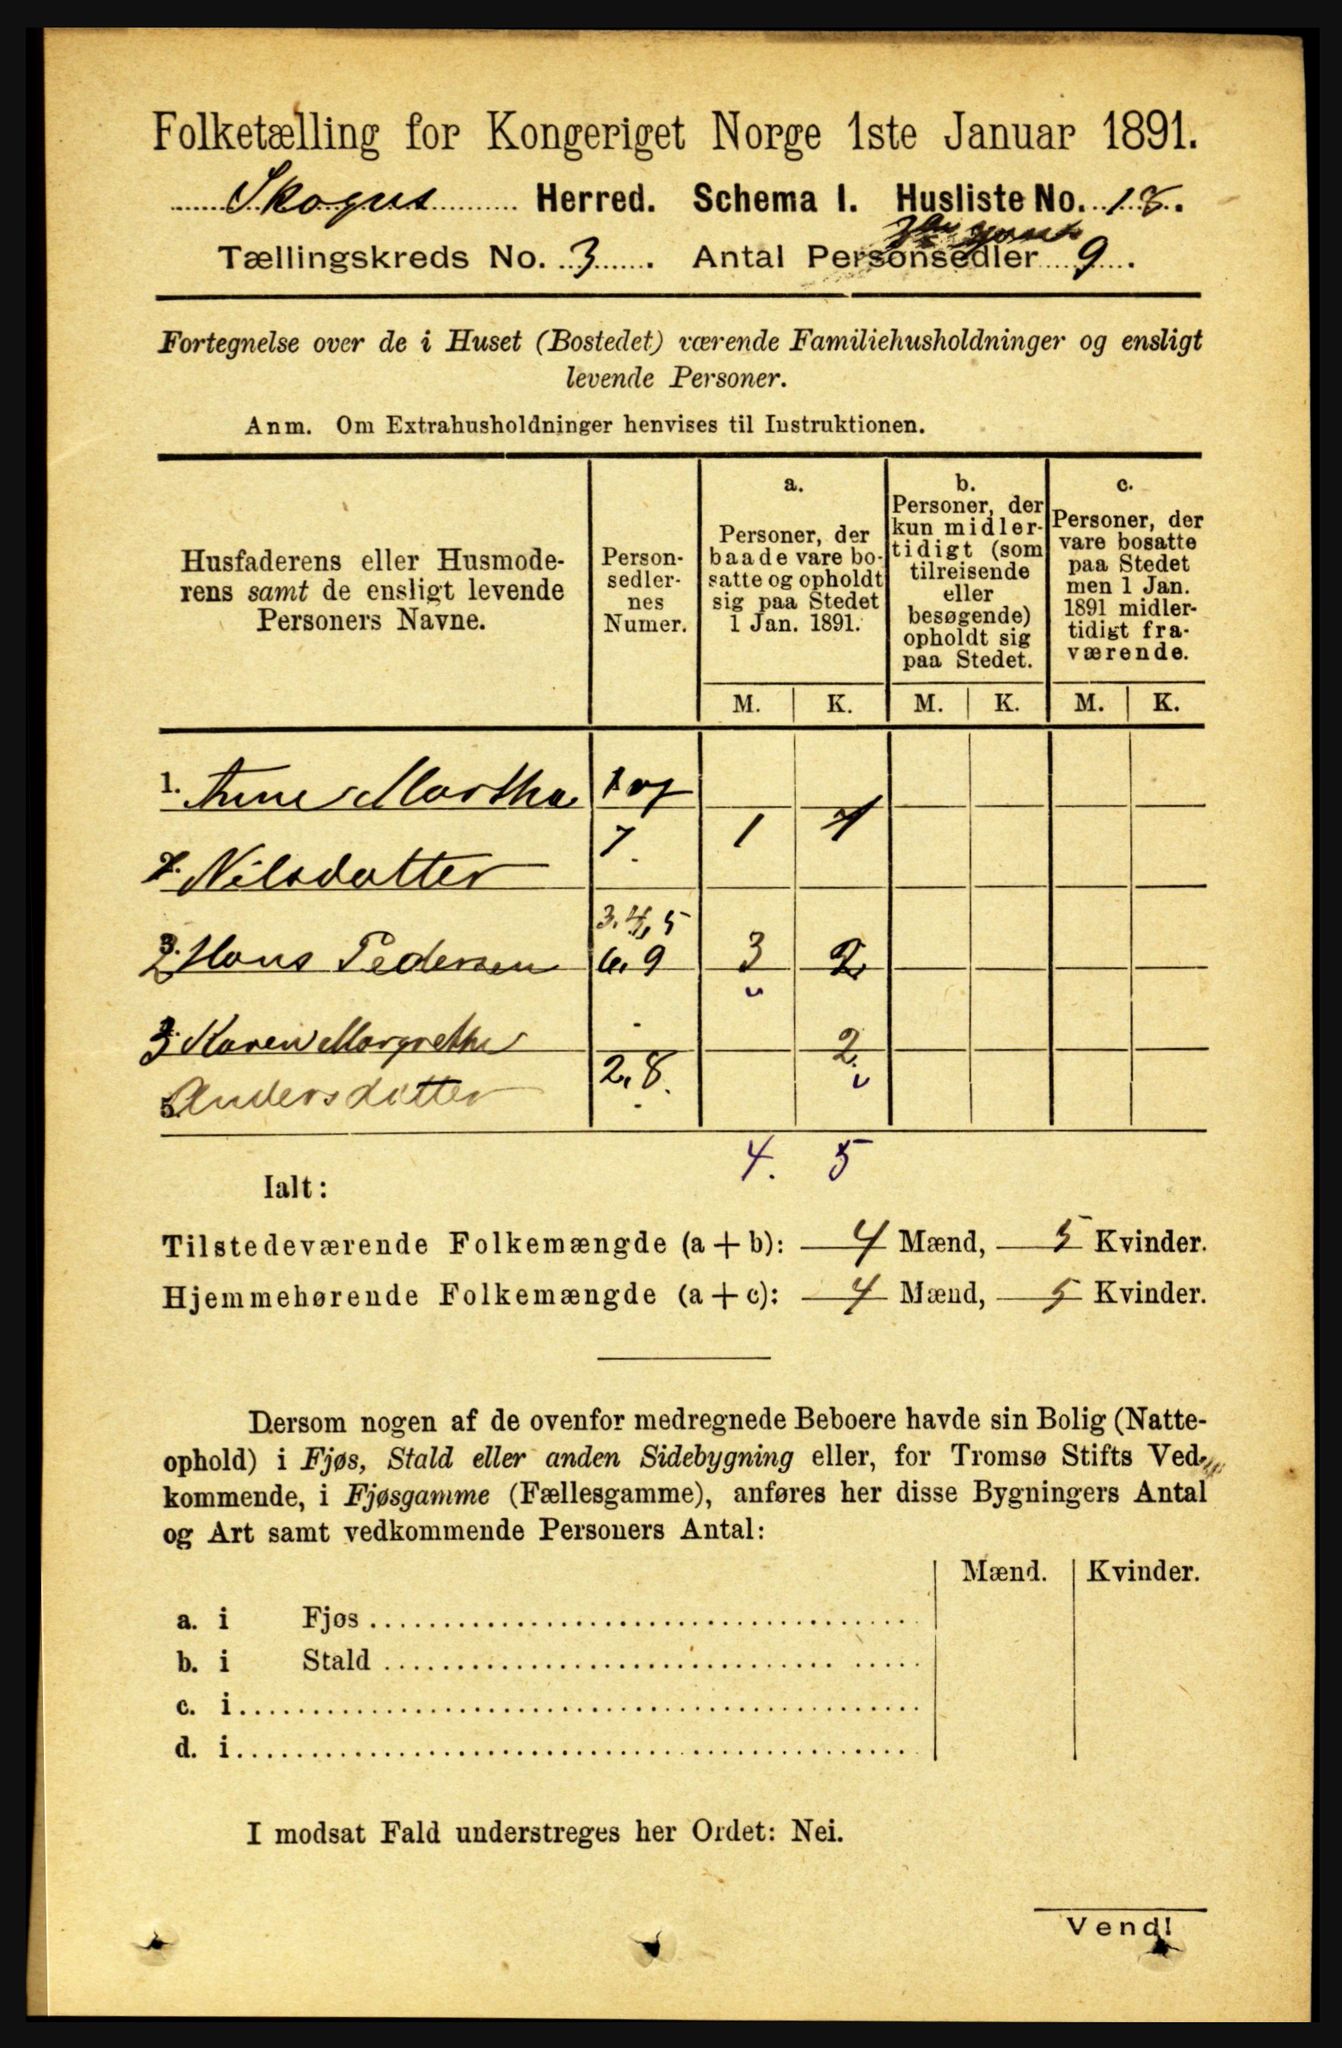 Folketælling for Kongeriget Norge 1ste Januar 1891.
Skogns Herred. Schema I. Husliste No. 18.
Tællingskreds No. 3. Antal Personsedler 9.
Fortegnelse over de i Huset (Bostedet) værende Familiehusholdninger og ensligt
levende Personer.
Anm. Om Extrahusholdninger henvises til Instruktionen.
Husfaderens eller Husmode-
rens samt de ensligt levende
Personers Navne.
Person-
sedler-
nes
Numer.
a.
Personer, der
baade vare bo-
satte og opholdt
sig paa Stedet
1 Jan. 1891.
b.
Personer, der
kun midler-
tidigt (som
tilreisende
eller
besøgende)
opholdt sig
paa Stedet.
c.
Personer, der
vare bosatte
paa Stedet
men 1 Jan.
1891 midler-
tidigt fra-
værende.
M. K. M. K. M. K.
1. Anne Martha 1 og
Nilsdatter 7. 1 1
3. 4, 5
2 Hans Pedersen 6. 9 3 2
3 Karen Margrethe 2
Andersdatter 2, 8.
4. 5
Ialt:
Tilstedeværende Folkemængde (a + b): 4 Mænd, 5 Kvinder.
Hjemmehørende Folkemængde (a + c): 4 Mænd, 5 Kvinder.
Dersom nogen af de ovenfor medregnede Beboere havde sin Bolig (Natte-
ophold) i Fjøs, Stald eller anden Sidebygning eller, for Tromsø Stifts Ved-
kommende, i Fjøsgamme (Fællesgamme), anføres her disse Bygningers Antal
og Art samt vedkommende Personers Antal:
Mænd. Kvinder.
a. i Fjøs
b. i Stald
c. i
d. i
I modsat Fald understreges her Ordet: Nei.
Vend!